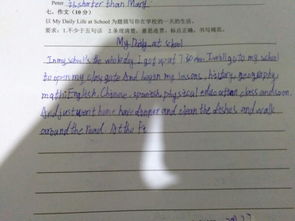 Peter is shorter than Mary.
七、作文(10分)
以 My Daily Life at School 为题描写你在学校的一天的生活。
要求:1.不少于五句话 2.条理清楚,意思连贯,标点正确,书写规范。
My Daily at school
In my school's the I get up at to my school
to open my class And began my lessons, history, geography
math, English, Chinese, spanish, physical education class and soon.
And just went home have dinner and clean the dishes and walk
around the road. At the